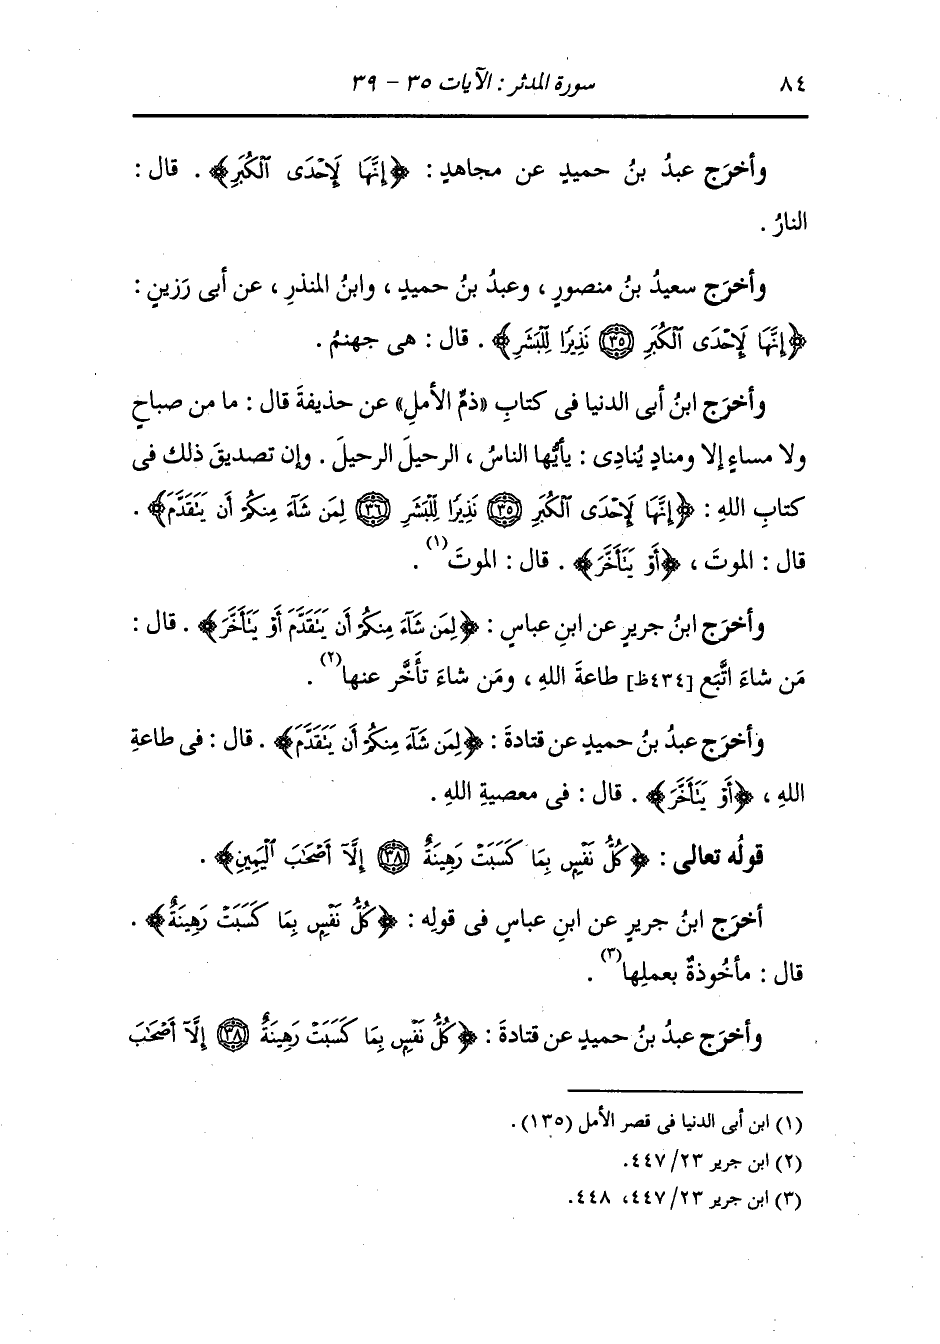 ٨٤ سورة المدثر : الآيات ٣٥ - ٣٩
وأخرَج عبدُ بنُ حميدٍ عن مجاهدٍ : ﴿إِنَّهَا لَإِحْدَى ٱلْكُبَرِ﴾ . قال :
النارُ .
وأخرَج سعيدُ بنُ منصورٍ ، وعبدُ بنُ حميدٍ ، وابنُ المنذرِ ، عن أبى رَزينٍ :
﴿إِنَّهَا لَإِحْدَى ٱلْكُبَرِ ۝٣٥ نَذِيرًا لِّلْبَشَرِ﴾ . قال : هى جهنمُ .
وأخرَج ابنُ أبى الدنيا فى كتابِ «ذمِّ الأملِ» عن حذيفةَ قال : ما من صباحٍ
ولا مساءٍ إلا ومنادٍ يُنادِى : يأيُّها الناسُ ، الرحيلَ الرحيلَ . وإن تصديقَ ذلك فى
كتابِ اللهِ : ﴿إِنَّهَا لَإِحْدَى ٱلْكُبَرِ ۝٣٥ نَذِيرًا لِّلْبَشَرِ ۝٣٦ لِمَن شَآءَ مِنكُمْ أَن يَتَقَدَّمَ﴾ .
قال : الموتَ ، ﴿أَوْ يَتَأَخَّرَ﴾ . قال : الموتَ(١) .
وأخرَج ابنُ جريرٍ عن ابنِ عباسٍ : ﴿لِمَن شَآءَ مِنكُمْ أَن يَتَقَدَّمَ أَوْ يَتَأَخَّرَ﴾ . قال :
مَن شاءَ اتَّبَع [٤٣٤ظ] طاعةَ اللهِ ، ومَن شاءَ تأَخَّر عنها(٢) .
وأخرَج عبدُ بنُ حميدٍ عن قتادةَ : ﴿لِمَن شَآءَ مِنكُمْ أَن يَتَقَدَّمَ﴾ . قال : فى طاعةِ
اللهِ ، ﴿أَوْ يَتَأَخَّرَ﴾ . قال : فى معصيةِ اللهِ .
قولُه تعالى : ﴿كُلُّ نَفْسٍ بِمَا كَسَبَتْ رَهِينَةٌ ۝٣٨ إِلَّآ أَصْحَٰبَ ٱلْيَمِينِ﴾ .
أخرَج ابنُ جريرٍ عن ابنِ عباسٍ فى قولِه : ﴿كُلُّ نَفْسٍ بِمَا كَسَبَتْ رَهِينَةٌ﴾ .
قال : مأخُوذةٌ بعملِها(٣) .
وأخرَج عبدُ بنُ حميدٍ عن قتادةَ : ﴿كُلُّ نَفْسٍ بِمَا كَسَبَتْ رَهِينَةٌ ۝٣٨ إِلَّآ أَصْحَٰبَ
(١) ابن أبى الدنيا فى قصر الأمل (١٣٥) .
(٢) ابن جرير ٢٣/ ٤٤٧.
(٣) ابن جرير ٢٣/ ٤٤٧، ٤٤٨.